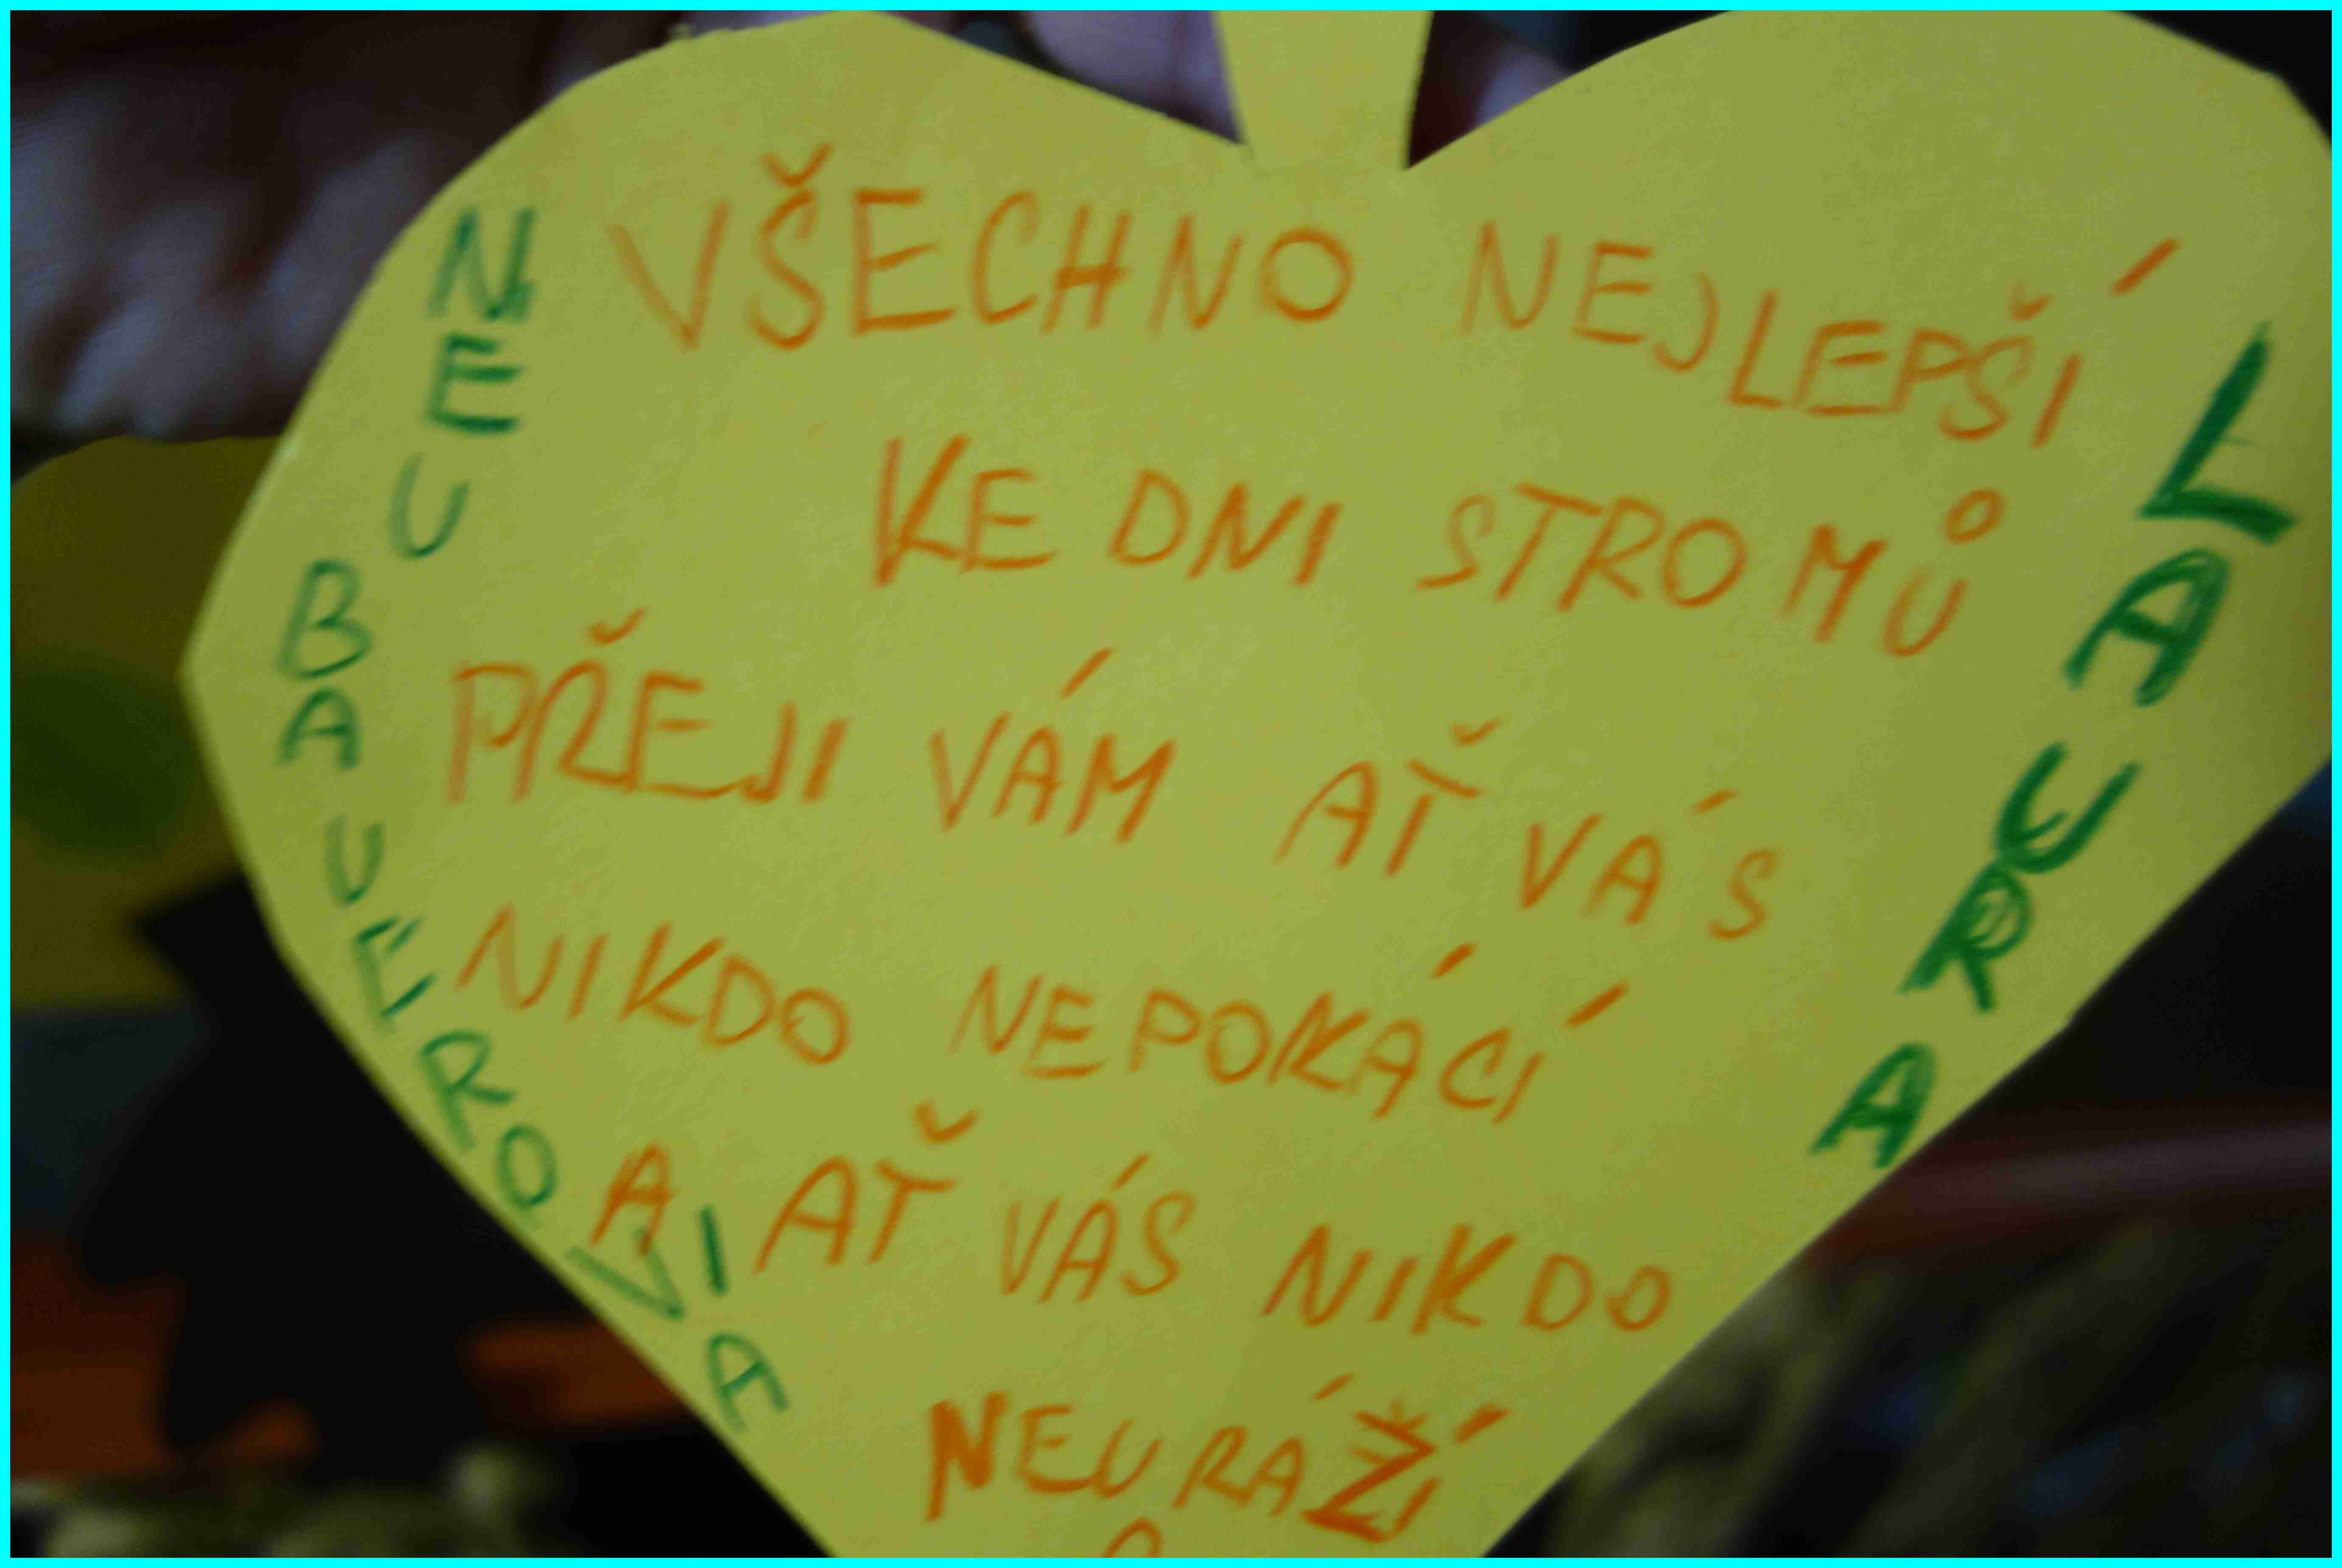 VŠECHNO NEJLEPŠÍ
KE DNI STROMŮ
PŘEJI VÁM AŤ VÁS
NIKDO NEPOKÁCÍ
A AŤ VÁS NIKDO
NEURÁŽÍ
NEUBAUEROVÁ
LAURA